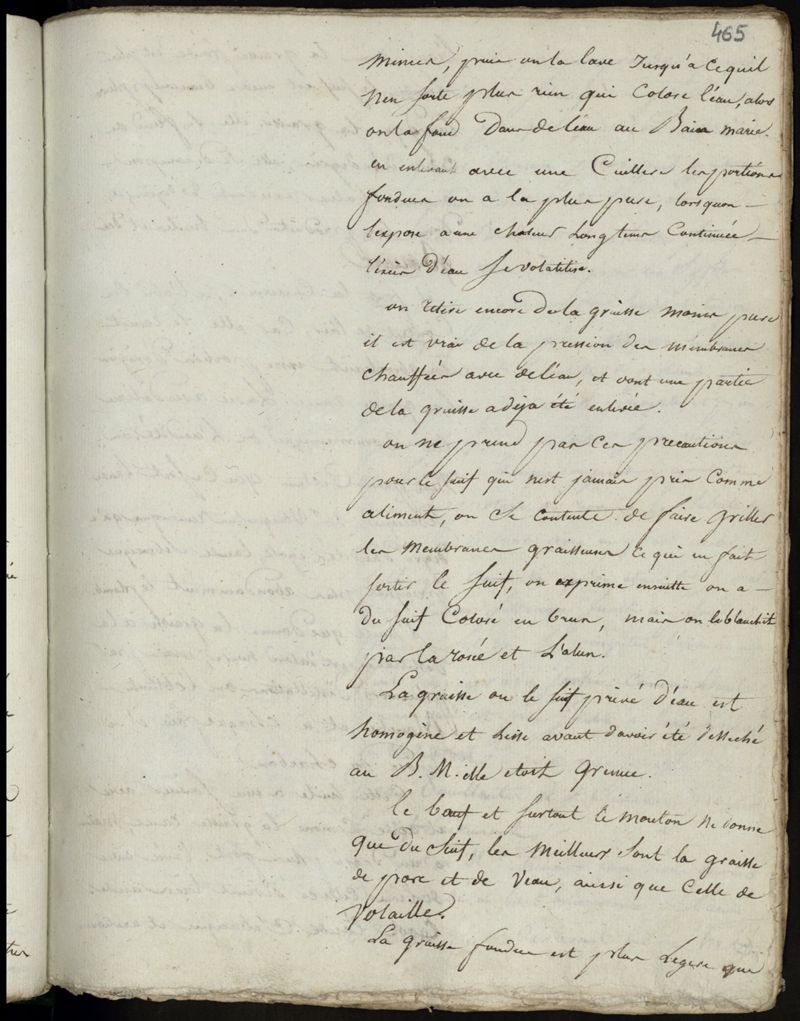 465
minces, puis on la lave Jusqu'a Cequil
Nen sorte plus rien qui Colore l'eau, alors
on la fond Dans de l'eau au Bain marie.
en enlevant avec une Cuillere les portions
fondues on a la plus pure, lorsquon
lexpose a une chaleur Longtems Continuée
l'exces d'eau se volatilise.
on retire encore de la graisse moins pure
il est vrai de la pression des membranes
chauffées avec de l'eau, et dont une partie
de la graisse a deja été enlevée.
on ne prend pas Ces precautions
pour le suif qui nest jamais pris Comme
aliment, on se contente de faire griller
les Membranes graisseuses ce qui en fait
sortir le suif, on exprime ensuitte on a
du suif Coloré en brun, mais on le blanchit
par la rosée et L'alun.
La graisse ou le suif privé d'eau est
homogène et Lisse avant d'avoir été desseché
au B. M. elle etoit Grenue.
le bœuf et surtout le mouton ne donne
que du suif, les Meilleurs sont la graisse
de porc et de Veau, ainsi que Celle de
Volaille.
La graisse fondue est plus Legere que